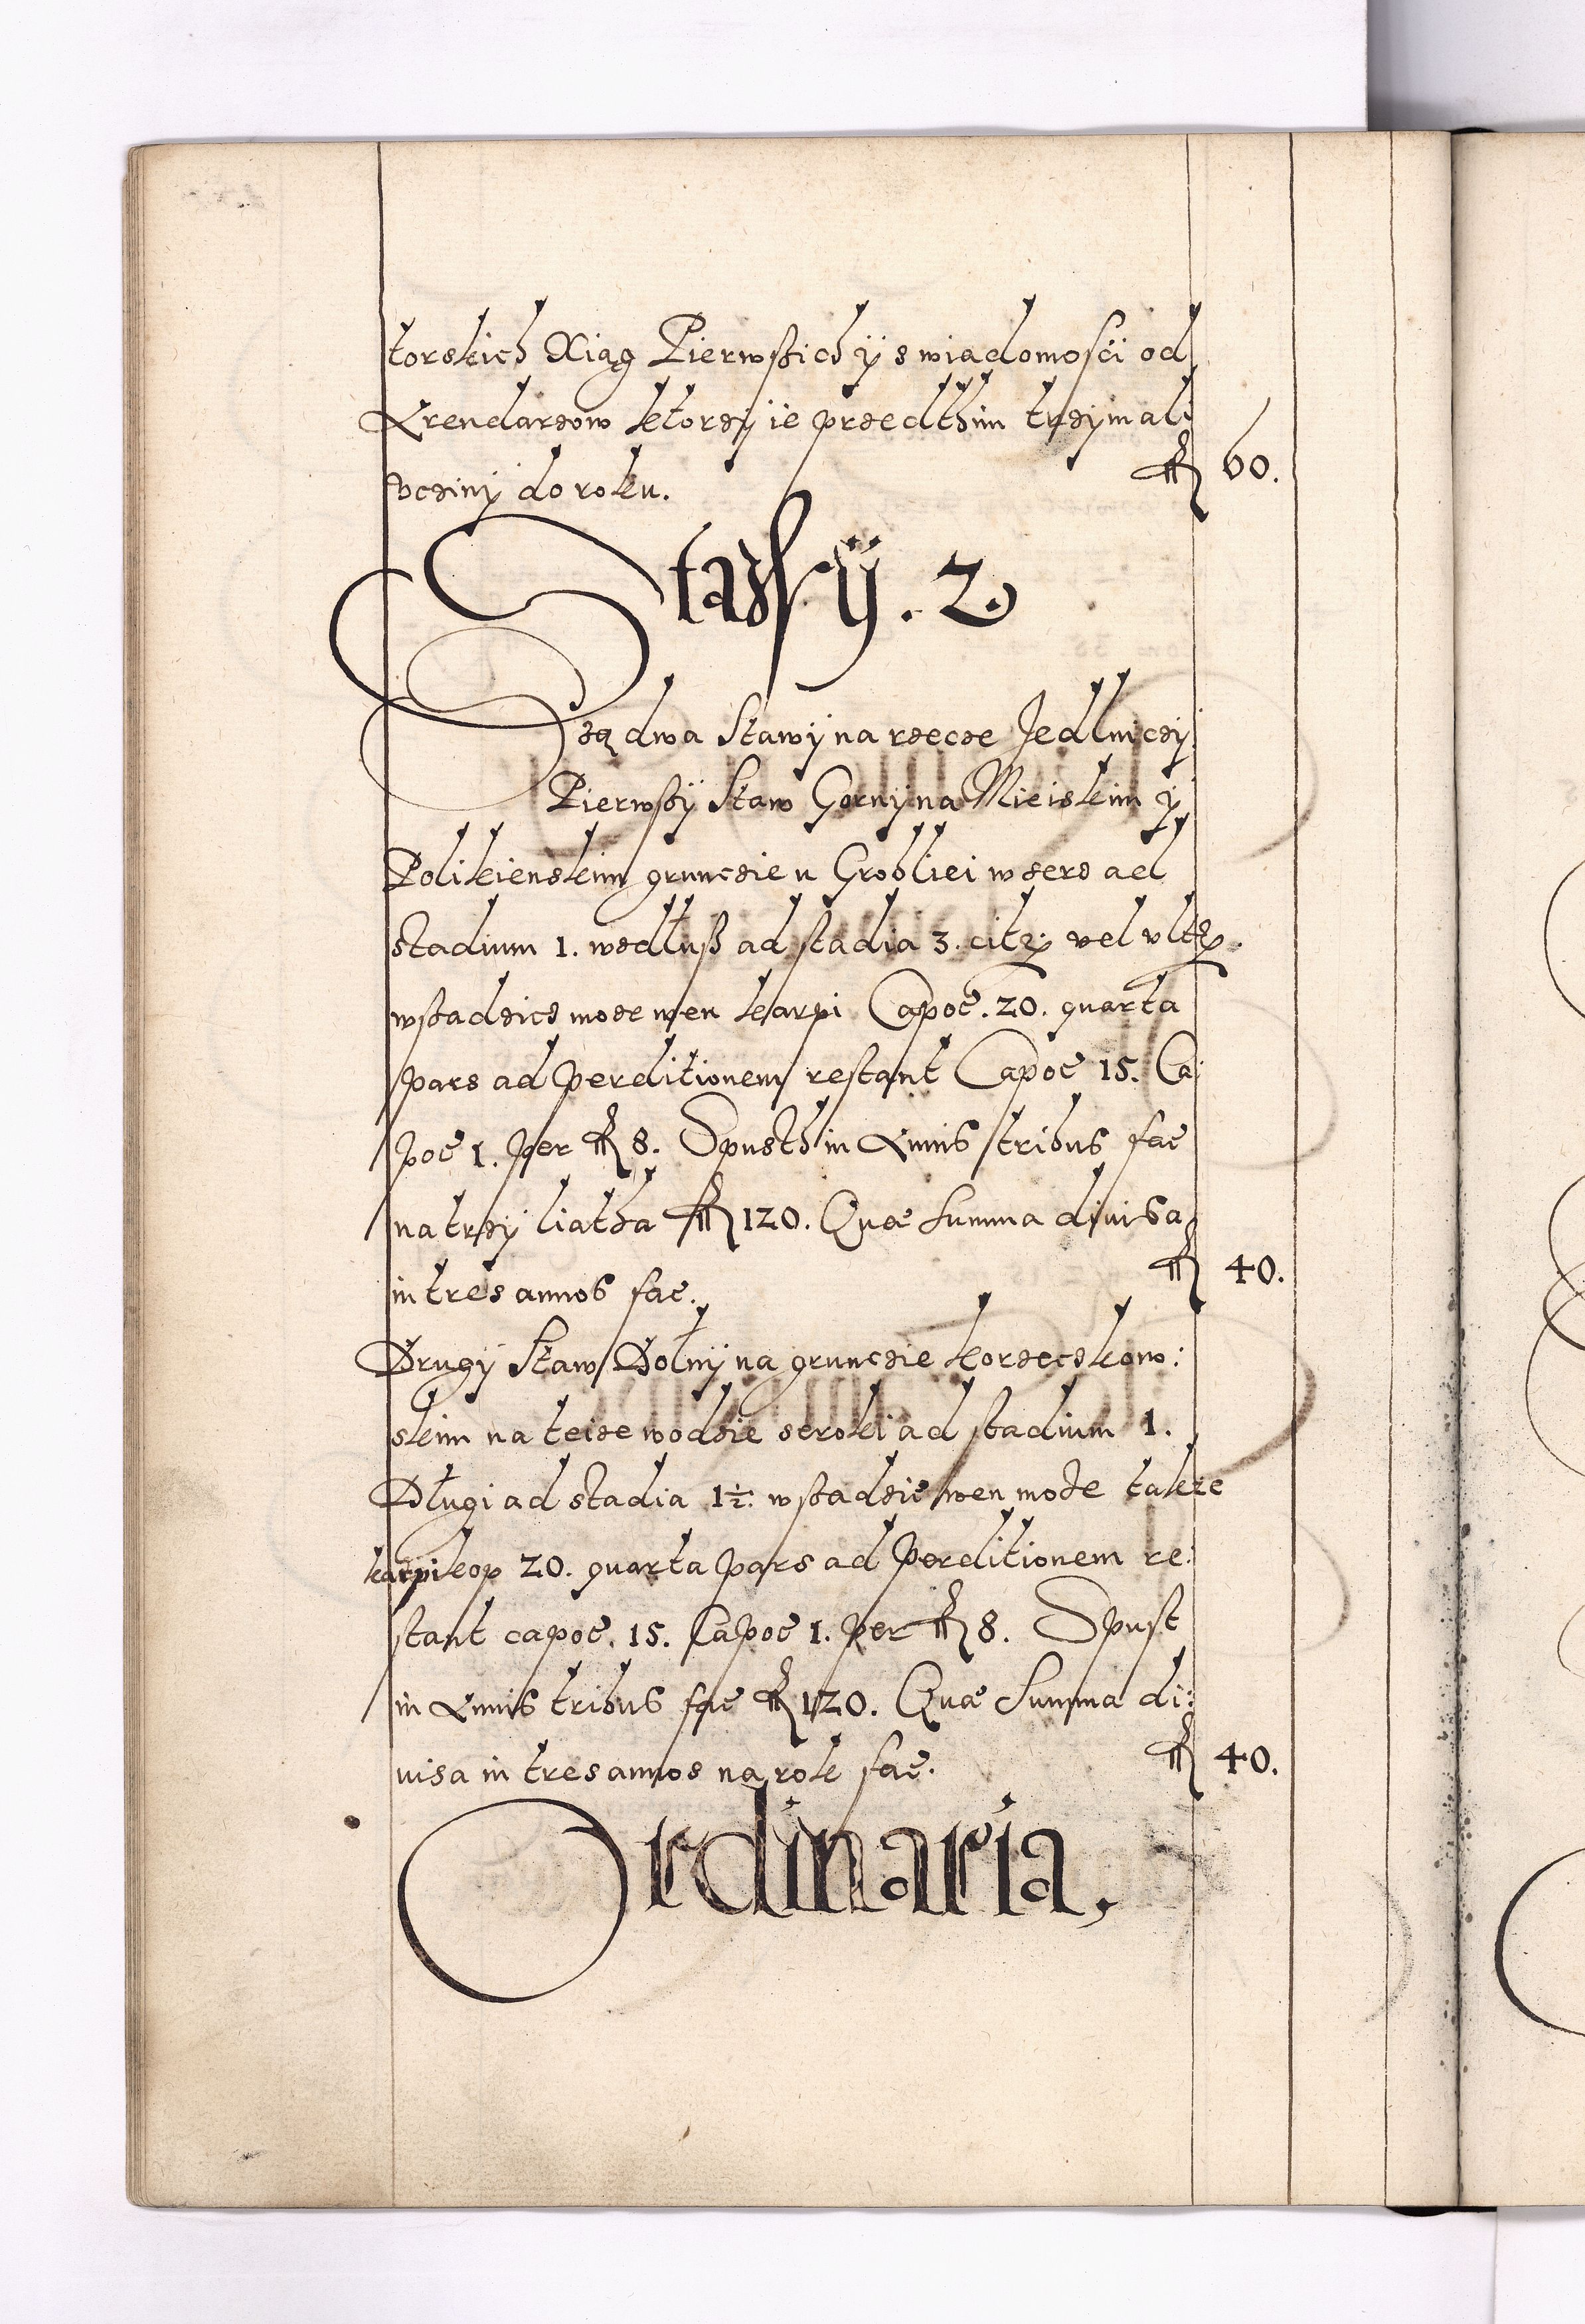 torskich Xiąg Pierwßich ÿ s wiadomości od
Arendarzow ktorzÿ ie przedthim trzÿmali
vcziny do roku. ℔ 60.
Stawÿ. 2
Są dwa Stawÿ na rzecze Jedlniczÿ.
Pierwßÿ Staw Gornÿ na Mieiskim ÿ
grunczie u Grobliei wserz ad
stadium 1. wzdłuß ad stadia 3. citr: vel vltr:
wßadzicz moze wen karpi Capoc. 20. quarta
pars ad perditionem restant Capoc 15. Ca:
poc 1. per 8. Spusth in Annis tribus fac
na trzÿ liatha 120. Quæ Summa divisa
in tres annos fac. 40.
Drugÿ Staw Dolnÿ na grunczie
skim na teize wodzie seroki ad stadium 1.
Długi ad stadia 1½: wßadzic wen może takze
karpi kop 20. quarta pars ad perditionem re:
stant capoc. 15. Capoc 1. per 8. Spust
in Annis tribus fac 120. Quæ Summa di:
uisa in tres annos na rok fac. 40.
Ordinaria,